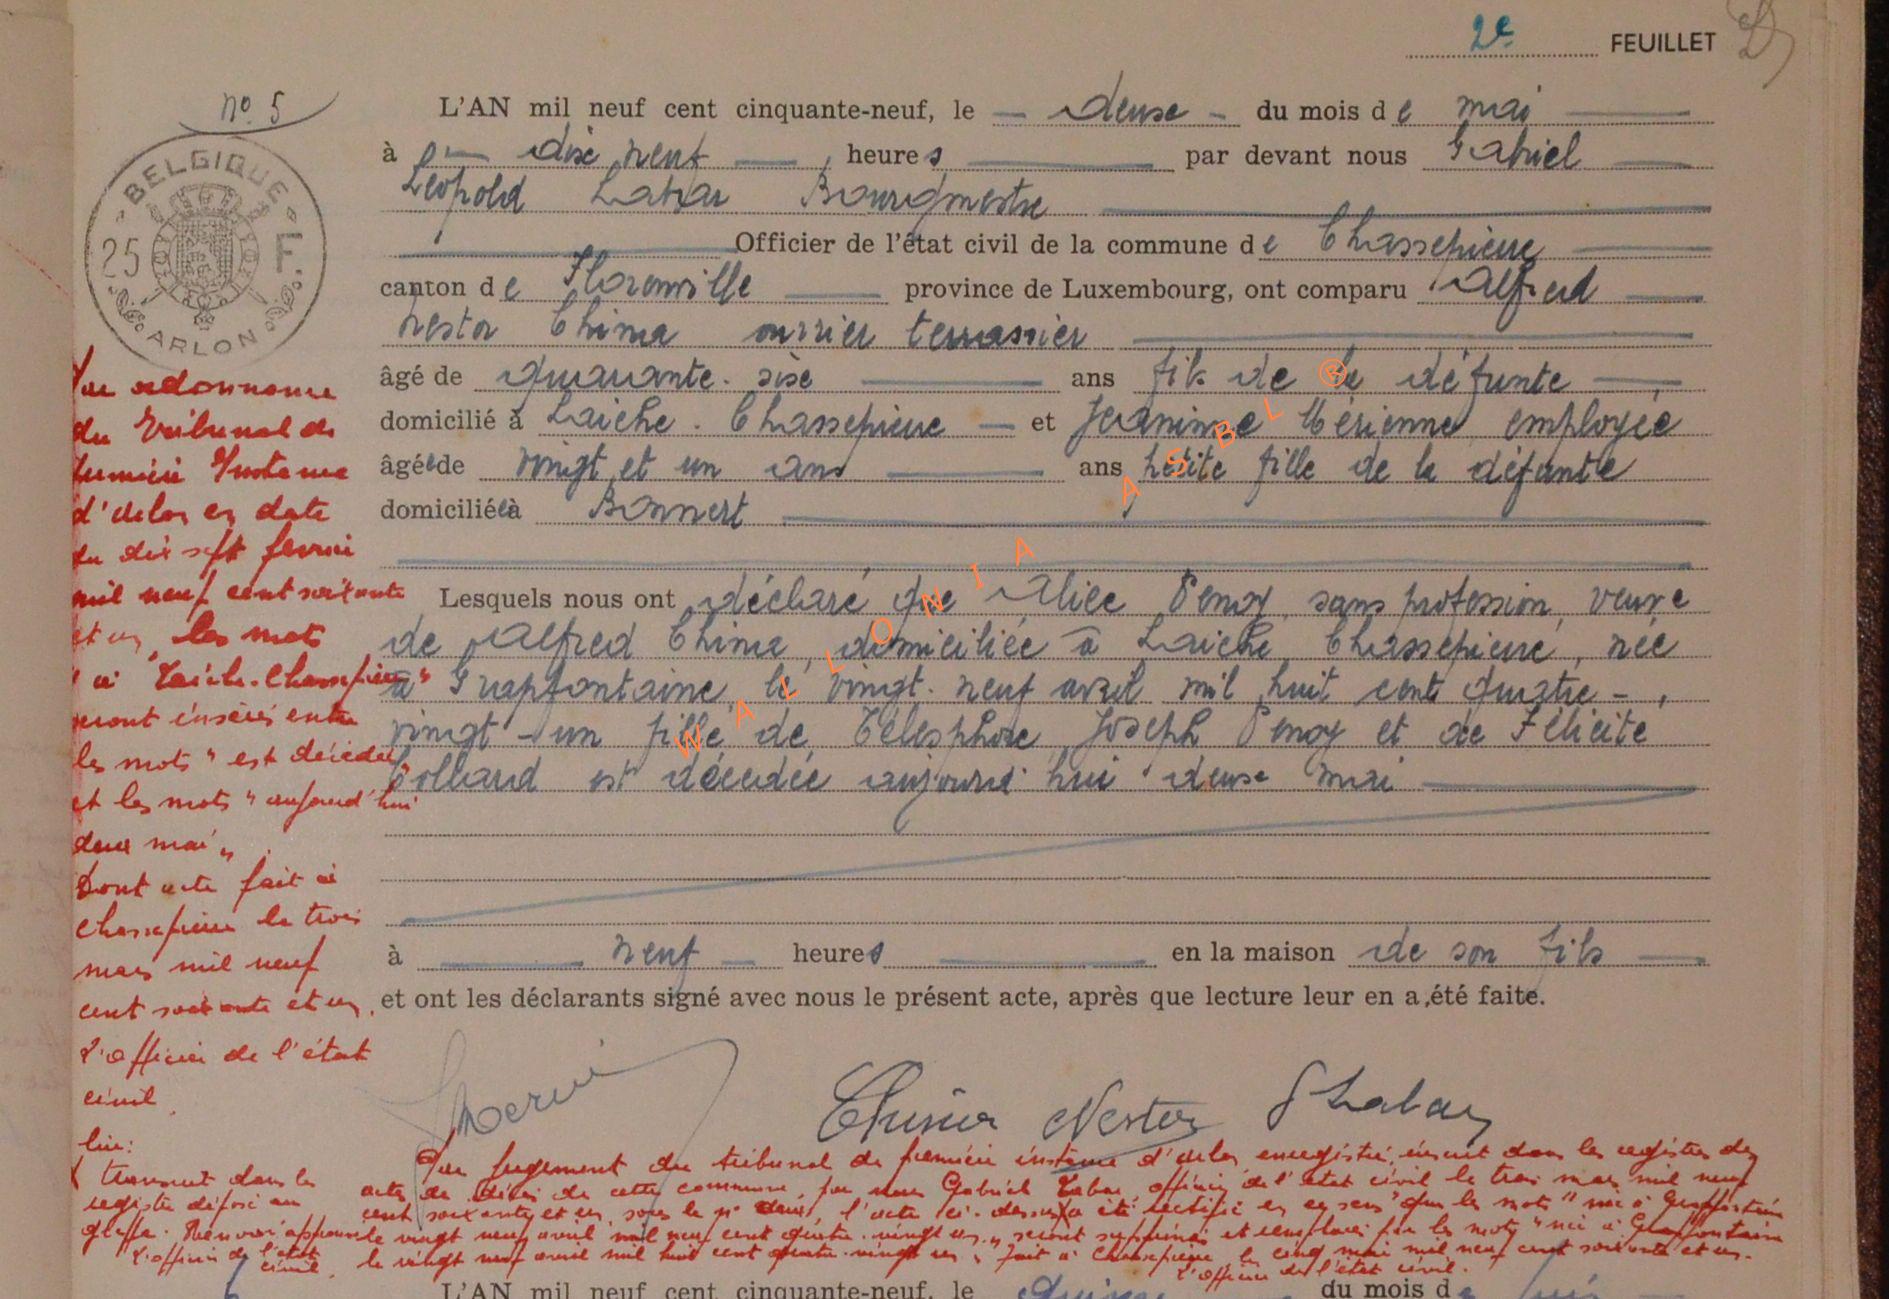 2e FEUILLET
No. 5
BELGIQUE
25 F.
ARLON
L'AN mil neuf cent cinquante-neuf, le — deuse — du mois de mai
à — dix neuf —, heures par devant nous Gabriel
Léopold Labar Bourgmestre
Officier de l'état civil de la commune de Chassepierre
canton de Florenville province de Luxembourg, ont comparu Alfred
Nestor Thima ouvrier terrassier
âgé de quarante-sixe ans fils de la défunte
domicilié à Laiche-Chassepierre et Jeannine Mérienne employée
âgée de vingt et un ans ans petite fille de la défunte
domiciliée à Bonnert
Lesquels nous ont déclaré que Alice Penoy, sans profession, veuve
de Alfred Thima, domiciliée à Laiche Chassepierre, née
à Grapfontaine, le vingt-neuf avril mil huit cent quatre-
vingt-un fille de Télesphore Joseph Penoy et de Félicité
Collard est décédée aujourd'hui deuse mai
à neuf heures en la maison de son fils
et ont les déclarants signé avec nous le présent acte, après que lecture leur en a été faite.
Nestor
GLabar
Par ordonnance
du Tribunal de
première Instance
d'Arlon en date
du dix sept février
mil neuf cent soixante
et un, les mots
"à Laiche-Chassepierre"
seront insérés entre
les mots "est décédée"
et les mots "aujourd'hui
deux mai"
Dont acte fait à
Chassepierre le trois
mars mil neuf
cent soixante et un.
L'officier de l'état
civil.
transcrit dans le
registre déposé au
greffe. Renvoi approuvé
L'officier de l'état
civil.
Par jugement du tribunal de première instance d'Arlon enregistré, inscrit dans les registres des
actes de décès de cette commune, par nous Gabriel Labar, officier de l'état civil le trois mars mil neuf
cent soixante et un, sous le no deux, l'acte ci-dessus a été rectifié en ce sens "que les mots "née à Grapfontaine
le vingt neuf avril mil neuf cent quatre-vingt un" seront supprimés et remplacés par les mots "née à Grapfontaine
le vingt neuf avril mil huit cent quatre-vingt un". Fait à Chassepierre, le cinq mai mil neuf cent soixante et un.
L'officier de l'état civil.
L'AN mil neuf cent cinquante-neuf, le quinze du mois de
WALLONIA ASBL ®